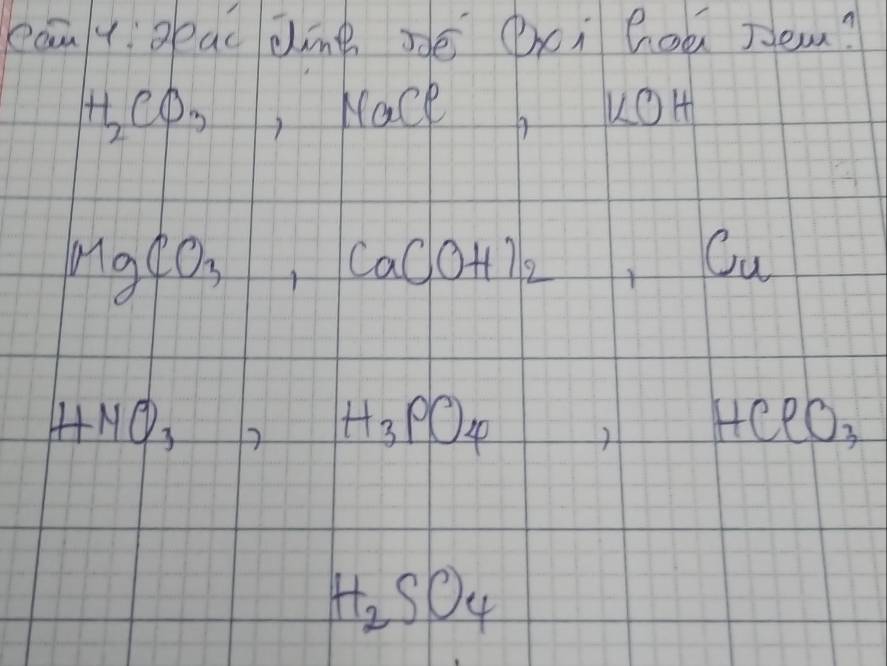 Câu 4: Xác định số Oxi hoá sau?
H₂CO₃, NaCl, KOH
MgCO₃, Ca(OH)₂, Cu
HNO₃, H₃PO₄, HClO₃
H₂SO₄